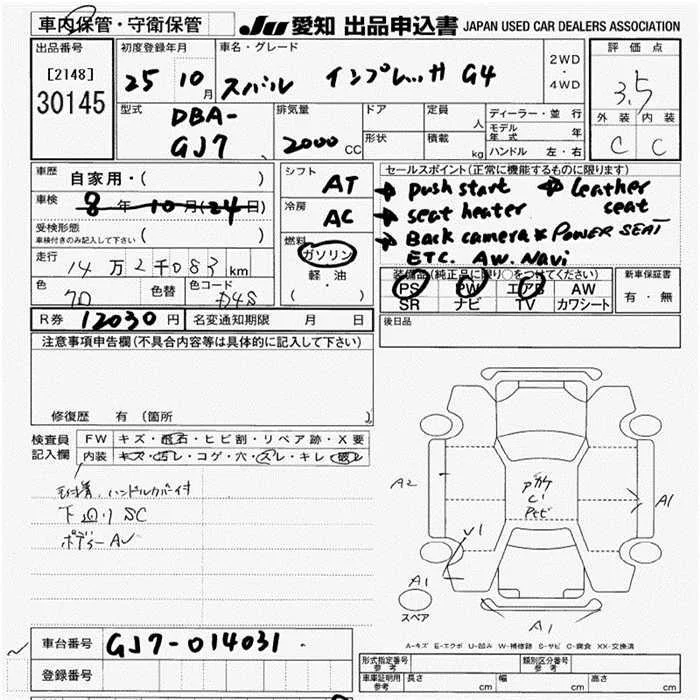 車内保管・守衛保管
JU 愛知 出品申込書 JAPAN USED CAR DEALERS ASSOCIATION
出品番号
[2148]
30145
初度登録年月
25 10月
車名・グレード
スバル インプレッサ G4
2WD
・
4WD
評価点
3.5
外装 内装
C C
型式
DBA-
GJ7
排気量
2000 CC
ドア
形状
定員 人
積載 kg
ディーラー・並行
モデル年式 年
ハンドル 左・右
車歴
自家用・( )
車検
8年10月(24日)
受検形態
車検付きのみ記入して下さい ( )
走行
14万2千083km
色 色替 色コード
シフト
AT
冷房
AC
燃料
ガソリン
軽・油
( ・ )
セールスポイント(正常に機能するものに限ります)
→ Push start → Leather seat
→ seat heater
→ Back camera * POWER SEAT
ETC. AW. Navi
装備品(純正品に限り○をつけてください)
PS PW エアB AW
SR ナビ TV カワシート
新車保証書
有・無
R券 12030円
名変通知期限 月 日
後日品
注意事項申告欄(不具合内容等は具体的に記入して下さい)
修復歴 有(箇所 )
検査員記入欄
FW キズ・飛石・ヒビ割・リペア跡・X要
内装 キズ・汚レ・コゲ・穴・スレ・キレ・
ハンドルカバー付
下廻り SC
ボディー AU
A2
A1
U1
A1
スペア
A1
A-キズ E-エクボ U-凹み W-補修跡 S-サビ C-腐食 XX-交換済
車台番号 GJ7-014031
登録番号
形式指定番号 参考
類別区分番号 参考
車庫証明用 参考 長さ cm 幅 cm 高さ cm